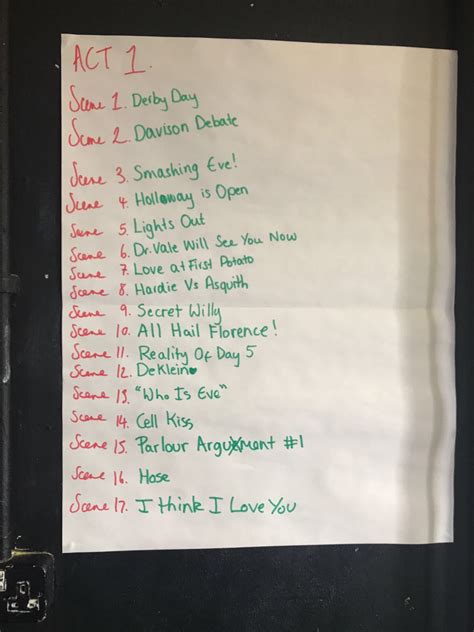 ACT 1.
Scene 1. Derby Day
Scene 2. Davison Debate
Scene 3. Smashing Eve!
Scene 4. Holloway is Open
Scene 5. Lights Out
Scene 6. Dr. Vale Will See You Now
Scene 7. Love at First Potato
Scene 8. Hardie Vs Asquith
Scene 9. Secret Willy
Scene 10. All Hail Florence!
Scene 11. Reality Of Day 5
Scene 12. DeKlein
Scene 13. "Who Is Eve"
Scene 14. Cell Kiss
Scene 15. Parlour Argument #1
Scene 16. Hose
Scene 17. I think I Love You